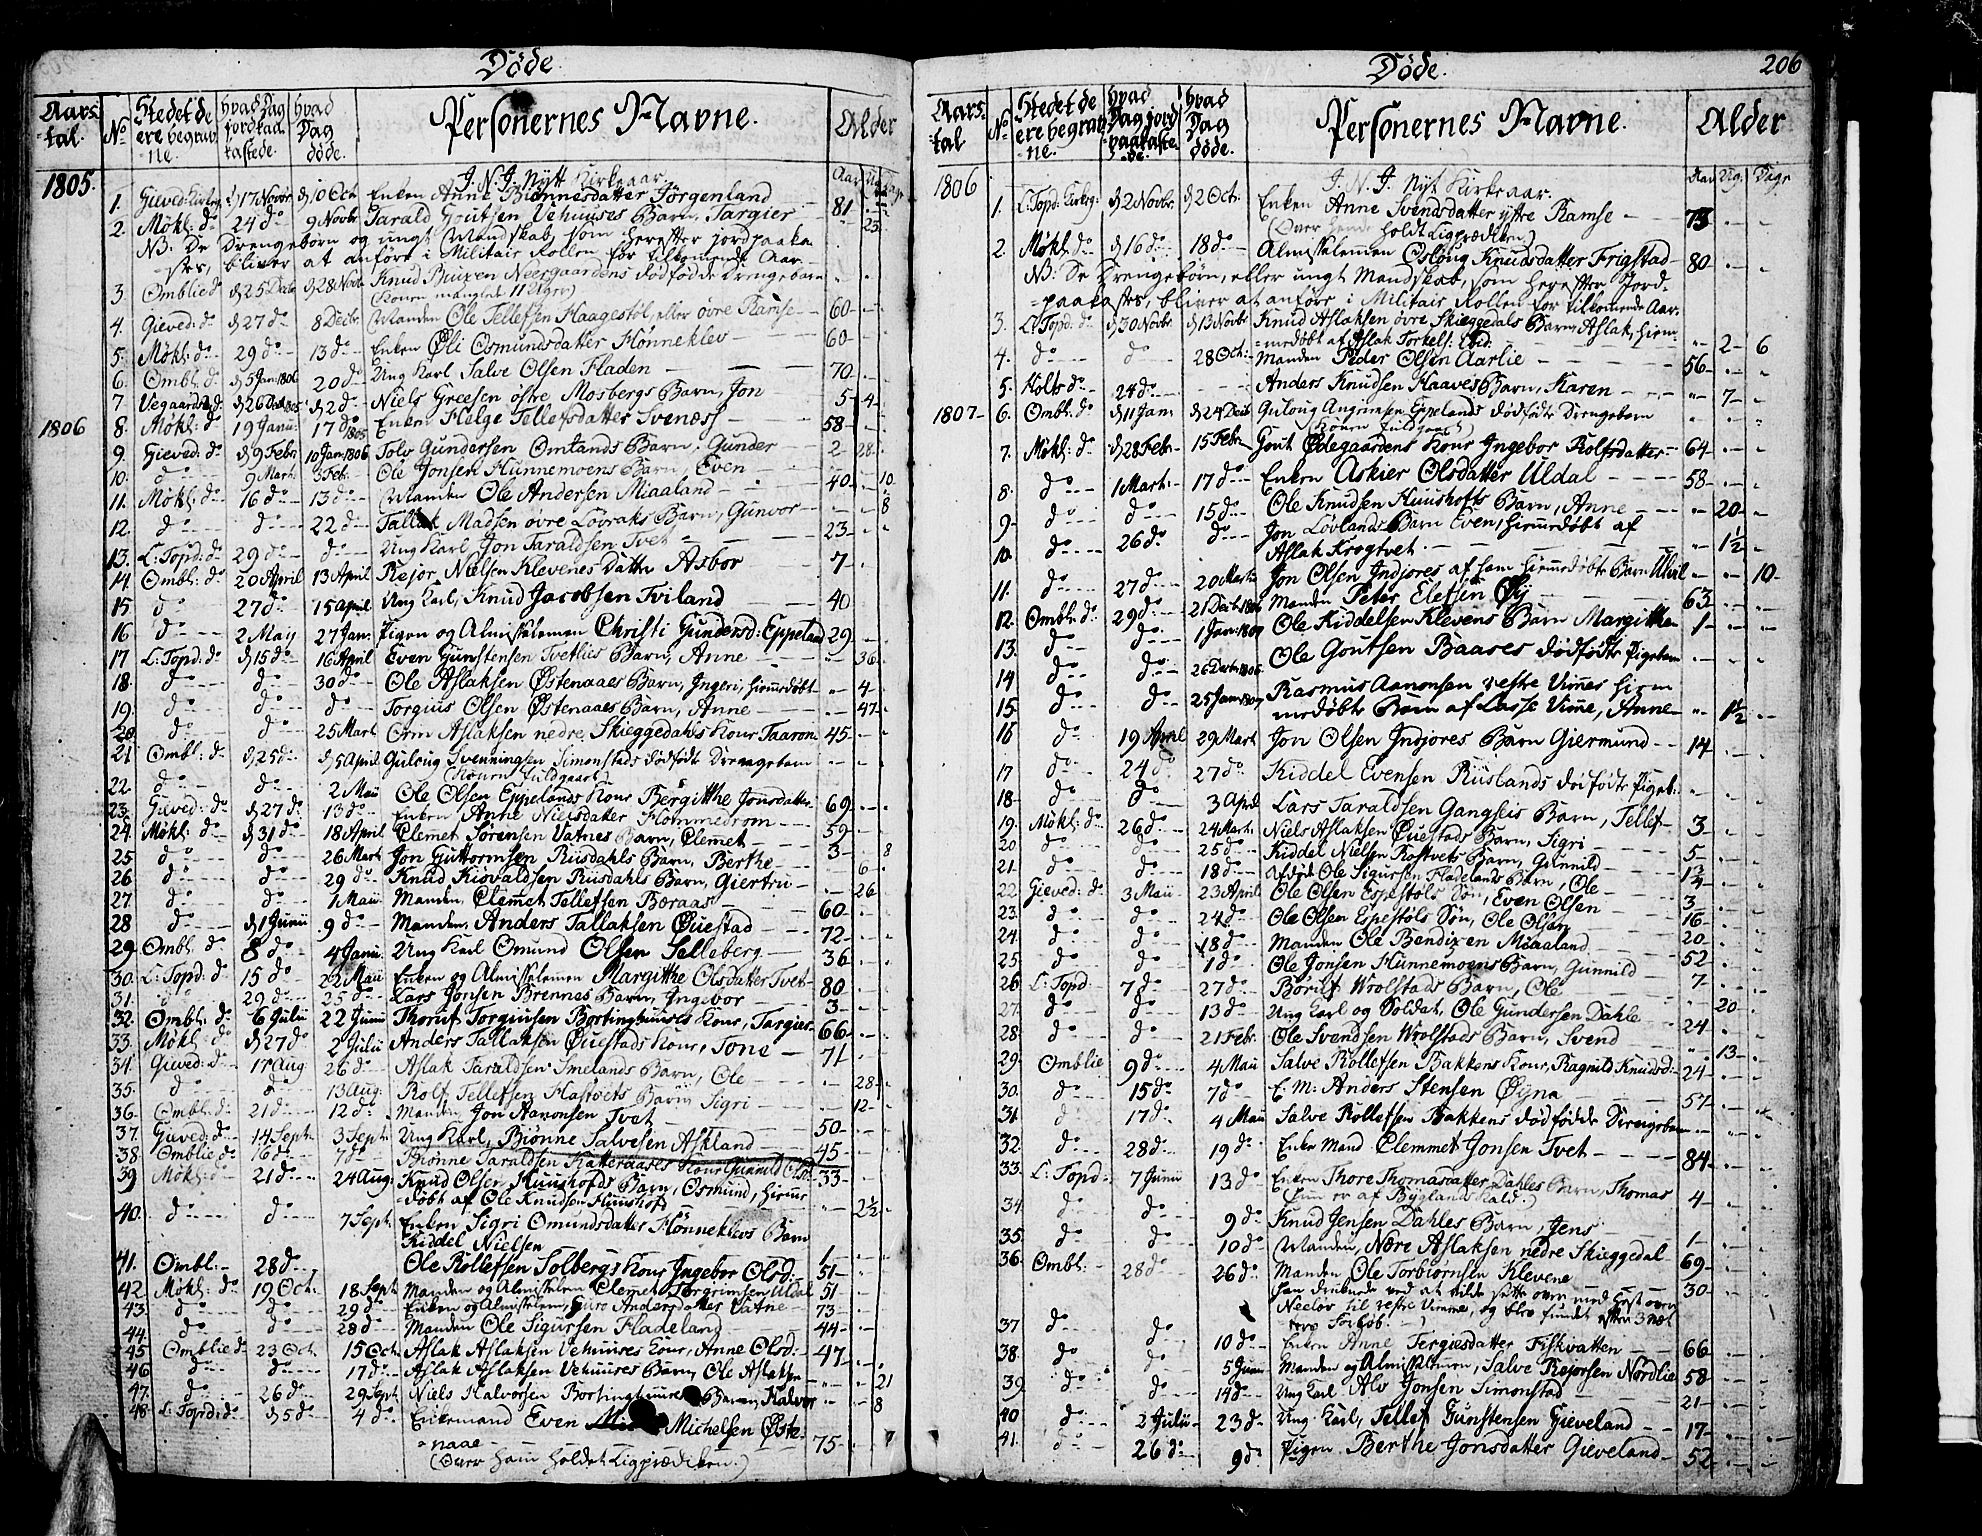 Døde.
Aars-tal. No Stedet de ere begravne. hvad Dag jordpaakastede. hvad Dag døde. Personernes Navne. Alder
1805. I. N. J. Nytt Kirkeaar. Aar Ug: Dage
1. Gieved: Kirkeg: d 17 Novbr d 10 Oct Enken Anne Biønnesdatter Jørgenland 81
2. Møkl: do 24 do 9 Novbr Tarald Goutsen Vehuuses Barn, Targier 23
NB: De Drengebørn og ungt Mandskab, som herefter jordpaaka-
stes, bliver at anføre i Militair Rollen for tilkomende Aar.
3. Omblie do d 25 Decbr d 28 Novbr Knud Buxen Neergaardens dødfødte Drengebarn
(Konen manglet 11 Uger)
4. Gieved: do d 27 do 8 Decbr Manden Ole Tellefsen Haagestøl, eller øvre Ramse 60
5. Møkl: do 29 do 13 do Enken Øli Osmundsdatter Hønneklev 60
6. Ombl: do d 5 Jan: 1806 20 do Ung Karl Salve Olsen Fladen 70
7. Vegaards: do d 26 Decbr 1805 d 2 do Niels Greesen østre Mosbergs Barn, Jon 5 4
1806 8. Møkl: do 19 Janu: 17 do 1805 Enken Helge Tellefsdatter Svenæss 58
9. Gieved: do d 9 Febr 10 Jan: 1806 Tolv Gundersen Omlands Barn, Gunder 2 28
10. do 9 Mart: 3 Febr Ole Jonsen Hunnemoens Barn, Even 10
11. Møkl: do 16 do 13 do Manden Ole Andersen Miaaland 40
12. do do 22 do Tallak Madsen øvre Lövraks Barn, Gunvor 8
13. L: Topd: do 29 do do Ung Karl Jon Taraldsen Tvet 23
14. Ombl: do 20 April 13 April Rejor Nielsen Klevenes Datter Asbor 7
15. do 27 do 15 April Ung Karl, Knud Jacobsen Tviland 40
16. do 2 May 27 Jan: Pigen og Almisselemen Christi Gundersd: Eppeland 29
17. L: Topd: do d 15 do 16 April Even Gunstensen Tvetlies Barn, Anne 36
18. do do 30 do Ole Aslaksen Østenaaes Barn, Ingeri, hiemmedøbt 4
19. do do do Torgius Olsen Østenaaes Barn, Anne 47
20. do do 25 Mart Orm Aslaksen nedre Skieggedahls Kone Taaron 45
21. Ombl: do d 25 do d 5 April Guloug Svenningsen Simonstads dødfødt Drengebarn
(Konen fuldgaaet)
22. do do 2 Mai Ole Olsen Eppelands Kone Bergitthe Jonsdatter 69
23. Gieved: do d 27 do 13 do Enken Anne Nielsdatter Flommedrom 59
24. Møkl: do d 31 do 18 April Clemet Sørensen Vatnes Barn, Clemet 3
25. do do 26 Mart Jon Guttormsen Rusdahls Barn, Berthe 8
26. do do 29 do Knud Kiovaldsen Rusdahls Barn, Giertru 6
27. do do 1 Maii Manden, Clemet Tellefsen Beraas 60
28. do d 1 Junii 9 do Manden, Anders Tallaksen Øuestad 72
29. Ombl: do 8 do 4 Junii Ung Karl Omund Olsen Selleberg 36
30. L: Topd: do 15 do 22 Maii Enken og Almisselemen Margitthe Olsdatter Tvet 80
31. do 29 do 25 do Lars Jonsen Brennes Barn, Ingebor 3
32. Ombl: do 6 Julii 22 Junii Thoruf Torgiusen Bortinghuuses Kone, Targier 66
33. Møkl: do d 27 do 2 Julii Anders Tallaksen Øuestads Kone, Tone 71
34. Gieved: do 17 Aug 26 do Aslak Taraldsen Smelands Barn, Ole
35. do do 13 Aug. Rolf Tellefsen Hastvets Barn Sigri 28
36. Ombl: do 21 do 12 do Manden, Jon Aanonsen Tvet 50
37. Gieved: do 14 Sept: 3 Sept: Ung Karl, Biønne Salvesen Askland 45
38. Omblie do 16 do 7 do Biønne Taraldsen Katteraases Kone Gunnild Olsd: 33
39. Møkl: do 21 do 24 Aug: Knud Olsen Huushofds Barn, Osmund, hiemme-
døbt af Ole Knudsen Huushofd 2½
40. do do 7 Sept: Enken Sigri Omundsdatter Hønneklevs Barn
Kiddel Nielsen 1
41. Ombl: 28 do Ole Rollefsen Solbergs Kone Ingebor Olsd: 51
42. Møkl: do 19 Oct: 18 Sept Manden og Almisselem Clemet Torgrimsen Uldal 51
43. do do 29 do Enken og Almisselem, Guro Andersdatter Vatne 73
44. do do 28 do Manden Ole Sigursen Fladeland 44
45. Omblie do 23 Oct. 15 Oct. Aslak Aslaksen Vehuuses Kone, Anne Olsd: 47
46. do do 17 do Aslak Aslaksen Vehuuses Barn, Ole Aslaksen 21
47. do 26 do 29 Sept Niels Halvorsen Bortinghuuses Barn, Halvor 8
48. L: Topd: do d 5 do 4 do Enkemand Even Michelsen Øste-
naae 75
(Over ham holdet Ligprædiken.)
Døde. 206
Aars-tal No Stedet de ere begravne. hvad Dag jordpaakastede. hvad Dag døde. Personernes Navne. Alder
1806 I. N. J. Nyt Kirkeaar. Aar Ug: Dage
1. L: Topd: Kirkeg: d 2 Novbr: d 2 Octr: Enken Anne Svendsdatter ystre Ramse 73
(Over hende holdt Ligprædiken)
2. Møkl: do d 16 do 18 do Almisselemen Osloug Knudsdatter Frigstad 80
NB: De Drengebørn, eller ungt Mandskab, som herefter Jord-
paakastes, bliver at anføre i Militair Rollen for tilkomende Aar.
3. L: Topd: do d 30 Novbr. d 13 Novbr Knud Aslaksen øvre Skieggedals Barn, Aslak, hiem-
medøbt af Aslak Torkels: Ibid: 2 6
4. do do 28 Oct: Manden Peder Olsen Aarlie 56
5. Holts do 24 do Anders Knudsen Haaves Barn, Karen 7
1807 6. Ombl: do d 11 Jan: d 24 Decb Guloug Angrimsen Eppelands dødfødte Drengebarn
(Konen fuldgaaet)
7. Møkl: do d 28 Febr. 15 Febr. Gout Ødegaardens Kone Ingebor Rolfsdatter 64
8. do 1 Mart: 17 do Enken Askier Olsdatter Uldal 58
9. do do 15 do Ole Knudsen Huushofts Barn, Anne 20
10. do 26 do do Jon Lövlands Barn Even, hiemmedøbt af
Aslak Krogtvet 1½
11. do 27 do 20 Martii Jon Olsen Indjores af ham hiemmedøbte Barn Ulvil 10
12. Ombl: do 29 do 21 Decbr 1806 Manden Peter Elefsen Øy 63
13. do do 1 Jan: 1807 Ole Kiddelsen Klevens Barn Margitthe 1
14. do do 26 Decbr 1806 Ole Goutsen Baases dødfødte Pigebarn
15. do do 25 Jan: 1807 Rasmus Aanonsen vestre Vimes hiem
medøbte Barn af Lasse Vime, Anne 1½
16. do 19 April 29 Mart Jon Olsen Indjores Barn Giermund 14
17. do 24 do 27 do Kiddel Evensen Ruslands dødfødte Pigeb:
18. do do 3 April Lars Taraldsen Gangseis Barn, Tellef 3
19. Møkl: do 26 do 24 Mart: Niels Aslaksen Øuestads Barn, Sigri 5
20. do do 25 do Kiddel Nielsen Rostvets Barn, Gunnild
21. do do 18 do Afdøde Ole Sigursen Fladelands Barn, Ole
22. Gieved: do 3 Maii 23 April Ole Olsen Espestøls Søn, Even Olsen
23. do do 24 do Ole Olsen Espestøls Søn, Ole Olsen 16
24. do do 18 do Manden Ole Bendixen Miaaland
25. do do 1 do Ole Jonsen Hunnemoens Barn, Gunnild
26. L: Topd: 7 do 27 do Borilf Wrolstads Barn, Ole
27. do do 13 do Ung Karl og Soldat, Ole Gundersen Dahle
28. do do 21 Febr. Ole Svendsen Wrolstads Barn, Svend
29. Omblie 9 do 4 Maii Salve Rollefsen Bakkens Kone, Ragnild Knudsd: 24
30. do 15 do 7 do E: M: Anders Stensen Øyna 57
31. d 17 do 4 Maii Salve Rollefsen Bakkens dødfødde Drengebarn
32. do 28 do 19 do Enke Mand Clemmet Jonsen Tvet 84
33. L: Topd: 7 Junii 13 do Enken Thore Thomasdatter Dahles Barn, Thomas 4
(hun er af Byglands Kald.)
34. do do 9 do Knud Jensen Dahles Barn, Jens 1
35. do do 10 do Manden, Nære Aslaksen nedre Skieggedal 69
36. Ombl: 28 do 26 do Manden Ole Torbiørnsen Klevene 30
han druknede ved at vilde sætte over med Hest over
Neeløv til vestre Vimme, og blev fundet efter 3 næt
ters Forløb.
37 do do 10 do Enken Anne Tergiusdatter Fiskvatten 66
38. do do 5 Junii Manden og Almisselemen, Salve Rejorsen Nördlie 58
39. do do 14 do Ung Karl Alv Jonsen Simonstad 21
40 do 2 Julii 23 do Ung Karl, Tellef Gunstensen Gieveland 17
41. do 26 do 9 do Pigen Berthe Jonsdatter Gieveland 52